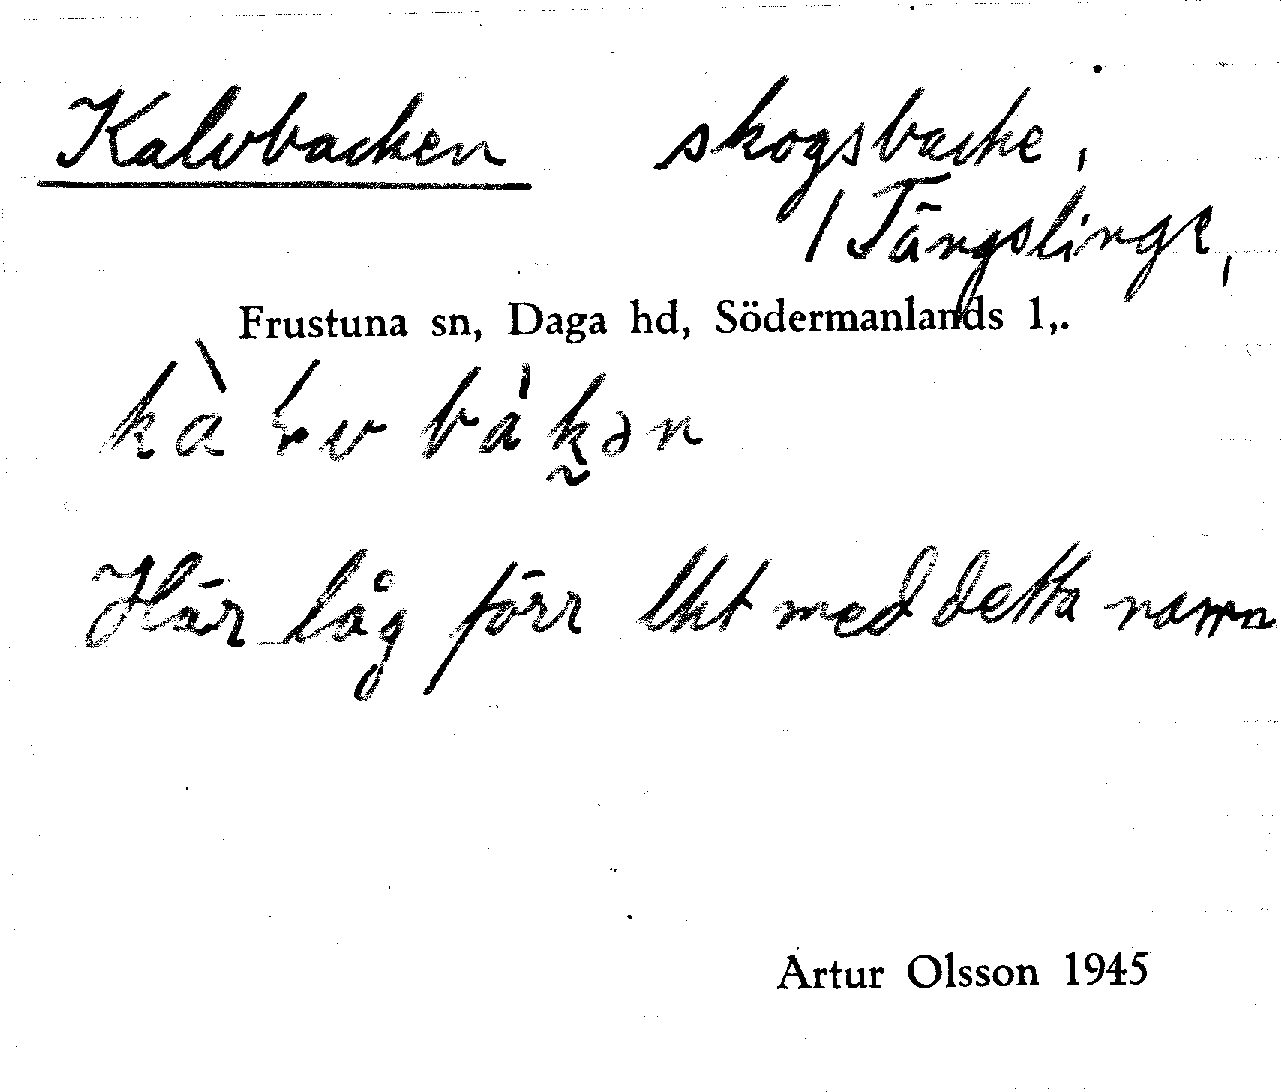 Kalvbacken skogsbacke,
/ Tängslinge,
Frustuna sn, Daga hd, Södermanlands l,.
bàkən
Här låg förr lht med detta namn
Artur Olsson 1945